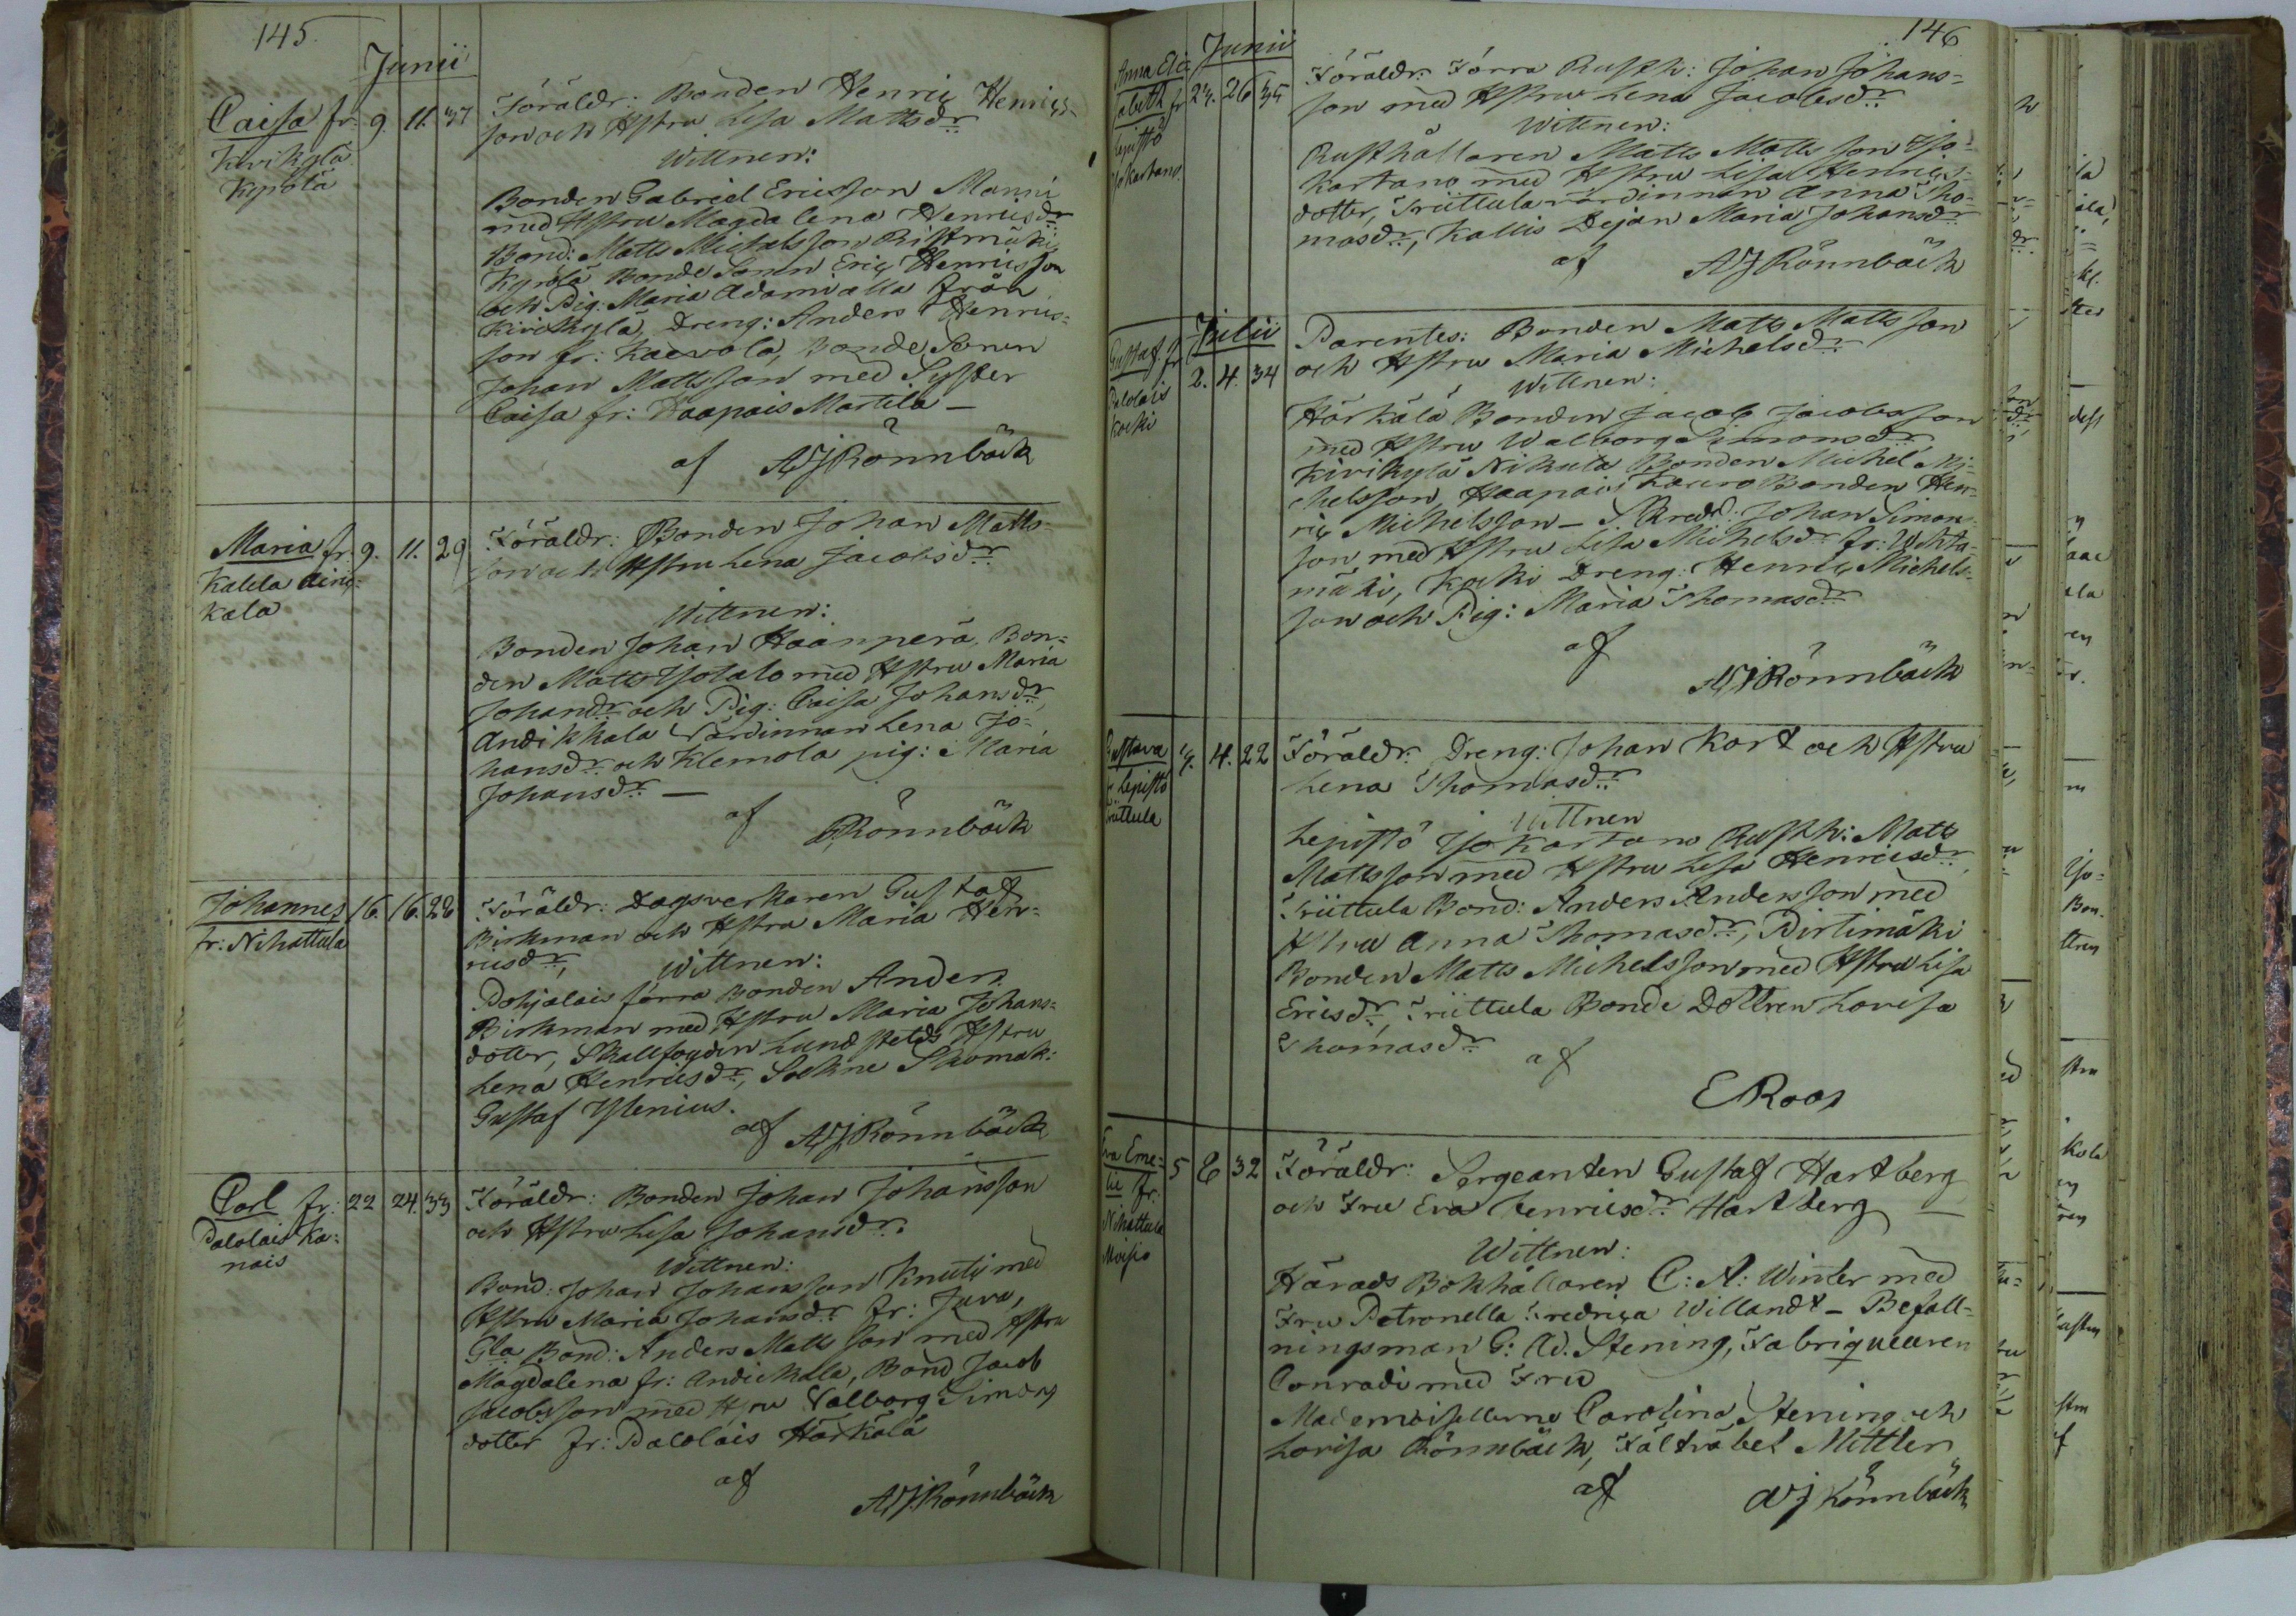 145.
Junii
Caisa fr: 9. 11. 37
Kivikylä
Kyrölä
Föräldr: Bonden Henric Henrics-
son och Hstru Lisa Mattsdr
Wittnen:
Bonden Gabriel Ericsson Manni
med Hstru Magdalena Henricsdr
Bond: Matts Michelsson Ristimäki,
Kyrölä Bonde Sonen Eric Henricsson
och Pig: Maria Adami alla från
Kivikylä, Dreng: Anders Henrics-
son fr: Kaevola, Bonde Sonen
Johan Mattsson med Syster
Caisa fr: Haapais Martila —
af AJRönnbäck
Maria fr: 9. 11. 29
Kalela
kala
Föräldr: Bonden Johan Matts-
son och Hstru Lena Jacobsdr
Wittnen:
Bonden Johan Haanperä, Bon-
den Matts Isotalo med Hstru Maria
Johansdr och Pig: Caisa Johansdr,
Andikkala Värdinnan Lena Jo-
hansdr och Klemola pig: Maria
Johansdr —
af Rönnbäck
Johannes 16. 16. 28
fr: Nihattula
Föräldr: Dagsverkaren Gustaf
Birkman och Hstru Maria Hen-
ricsdr,
Wittnen:
Pohjalais förra Bonden Anders
Birkman med Hstru Maria Johans-
dotter, Skallfogden Lundstelts Hstru
Lena Henricsdr, Sockne Skomak:
Gustaf Ylenius.
af AJRönnbäck
Carl fr: 22 24. 33
Palolais Ka-
nais
Föräldr: Bonden Johan Johansson
och Hstru Lisa Johansdr.
Wittnen:
Bond: Johan Johansson Knuti med
Hstru Maria Johansdr fr: Juva,
Gla Bond: Anders Mattsson med Hstru
Magdalena fr: Andickala, Bond Jacob
Jacobsson med Hstru Valborg Simons
dotter fr: Palolais Härkälä
af AJRönnbäck
146
Junii
Anna Eli-
sabeth fr 23. 26 35
Lepistö
Isokartano.
Föräldr: Förra Rusth: Johan Johans-
son med Hstru Lena Jacobsdr
Wittnen:
Rusthållaren Matts Mattsson Iso-
kartano med Hstru Lisa Henrics-
dotter, Friittula värdinnan Anna Tho-
masdr, Kallis Dejan Maria Johansdr
af AJRönnbäck
Julii
Gustaf fr 2. 4. 34
Palolais
Koski
Parentes: Bonden Matts Mattsson
och Hstru Maria Michelsdr
Wittnen:
Härkälä Bonden Jacob Jacobsson
med Hstru Walborg Simonsdr
Kivikylä Nikula Bonden Michel Mi-
chelsson, Haapais Lauro Bonden Hen-
ric Michelsson — Skredd: Johan Simons-
son med Hstru Lisa Michelsdr fr: Wehta-
mäki, Koski Dreng: Henric Michels-
son och Pig: Maria Thomasdr
af
AJRönnbäck
Gustava 4. 4. 22
fr Lepistö
Friittula
Föräldr: Dreng: Johan Kort och Hstru
Lena Thomasdr
Wittnen
Lepistö Isokartano Rusth: Matts
Mattsson med Hstru Lisa Henricsdr,
Friittula Bond: Anders Andersson med
Hstru Anna Thomasdr, Pirtimäki
Bonden Matts Michelsson med Hstru Lisa
Ericsdr, Friittula Bonde Dottren Lovisa
Thomasdr
af
E Roos
Eva Eme- 5 6 32
lie fr:
Nihattula
Moisio
Föräldr: Sergeanten Gustaf Hartberg
och Fru Eva Henricsdr Hartberg —
Wittnen:
Härads Bokhållaren C: A: Winter med
Fru Petronella Fredrica Willandt — Befall-
ningsman G: Ad. Stening, Fabriqueuren
Conradi med Fru
Mademoisellerne Carolina Stening och
Lovisa Rönnbäck, Fältväbel Mittler
af AJRönnbäck